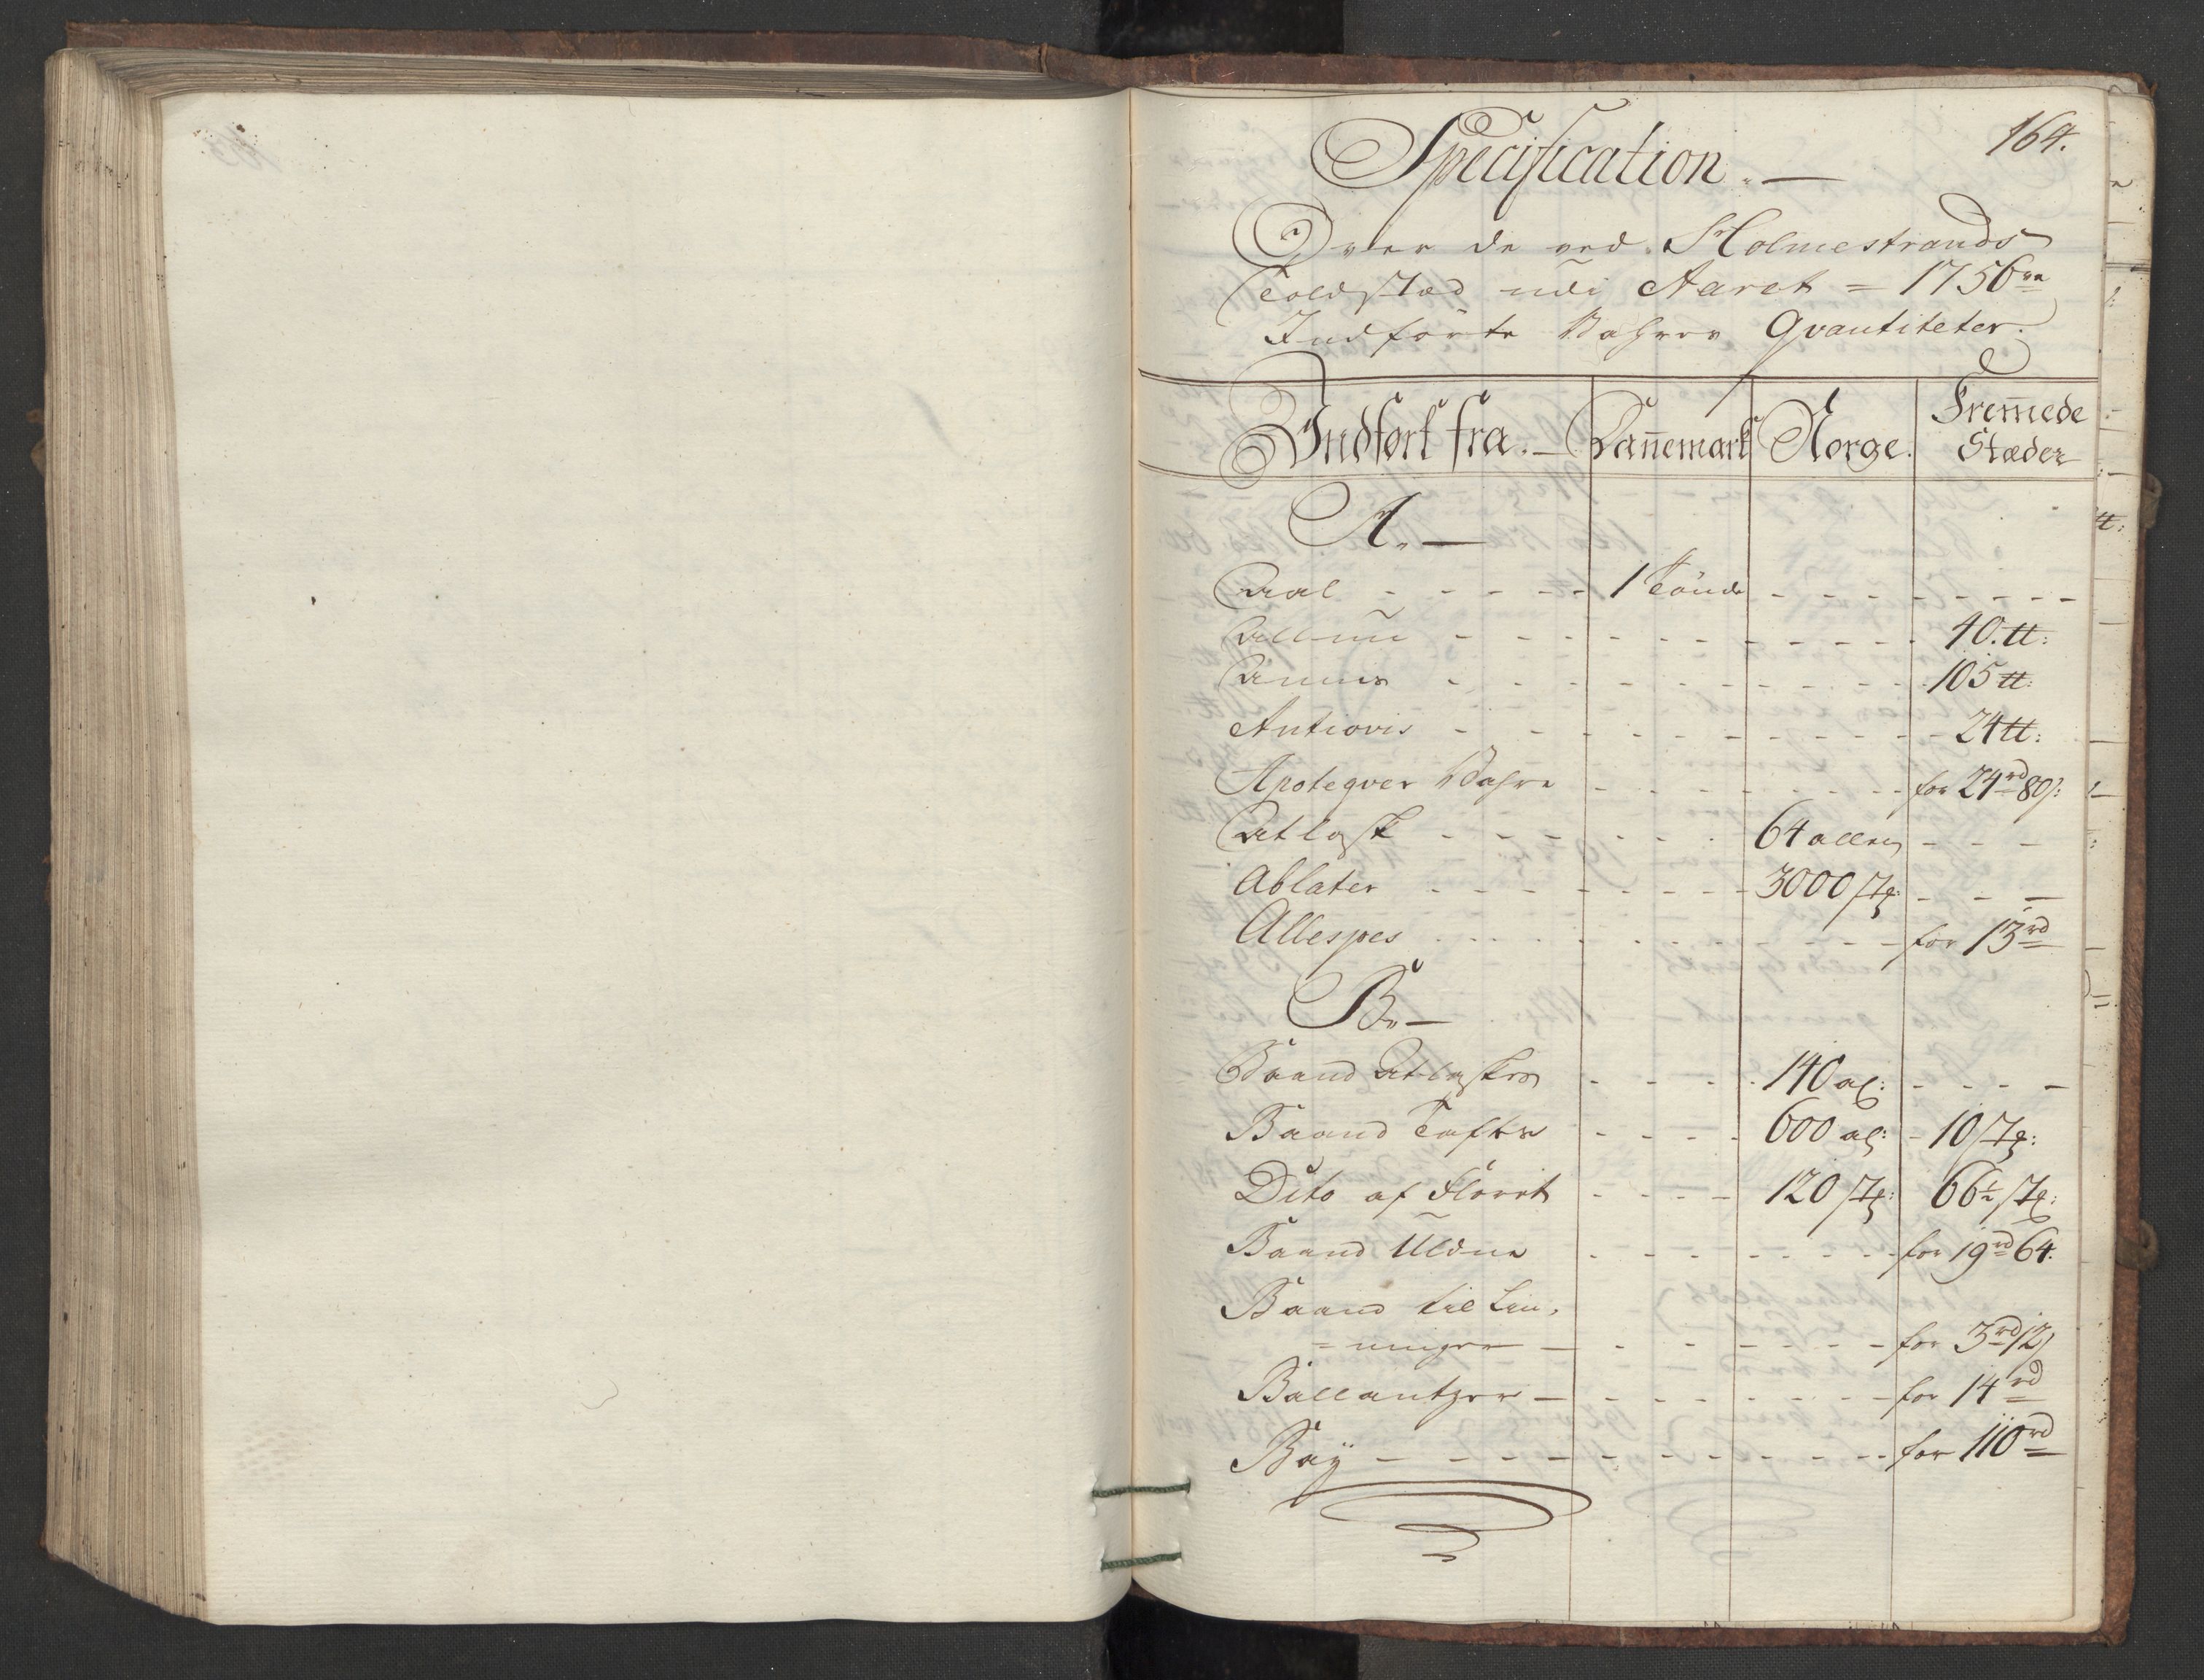 164.
Specification. —
Over de ved Holmestrands
Toldstæd udi Aaret = 1756ve
Indførte Vahres Qvantiteter.
Indført fra. — Dannemark Norge. Fremmede Stæder
A. —
Aal - - - - - 1 Tønde - - - - - - - -
Allun - - - - - - - - - - - 40. ℔:
Annis - - - - - - - - - - - 105 ℔:
Antiovis - - - - - - - - - - 24 ℔:
Apoteqver Vahre - - - - - - - for 24rd 80s:
Atlask - - - - - - - 64 allen - - -
Ablater - - - - - - - - 3000 st: - - -
Allespes - - - - - - - - - - for 13rd
B. —
Baand Atlaskes - - - - 140 al: - - - -
Baand Tafts - - - - 600 al: - 10 st:
Dito af Floret - - - - 120 st: 66½ st:
Baand Uldne - - - - - - - - for 19rd 64.
Baand til Lin-
= ninger — - - - - - - for 3rd 12s
Ballantzer — - - - - - - - for 14rd
Baÿ - - - - - - - - - - - - for 110rd